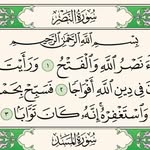 سُورَةُ النَّصْرِ
بِسْمِ اللَّهِ الرَّحْمَٰنِ الرَّحِيمِ
ءَ نَصْرُ اللَّهِ وَالْفَتْحُ ١ وَرَأَيْتَ
فِي دِينِ اللَّهِ أَفْوَاجًا ٢ فَسَبِّحْ بِحَمْ
وَاسْتَغْفِرْهُ إِنَّهُ كَانَ تَوَّابًا ٣
سُورَةُ الْمَسَدِ